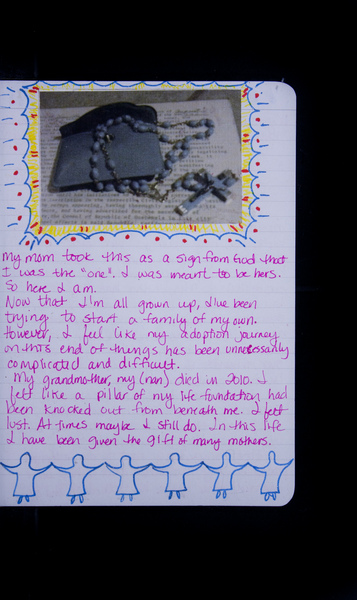 My mom took this as a sign from God that
I was the "one". I was meant to be hers.
So here I am.
Now that I'm all grown up, I've been
trying to start a family of my own.
However, I feel like my adoption journey
on this end of things has been unnecessarily
complicated and difficult.
My grandmother, my (nan) died in 2010. I
felt like a pillar of my life foundation had
been knocked out from beneath me. I felt
lost. At times maybe I still do. In this life
I have been given the gift of many mothers.